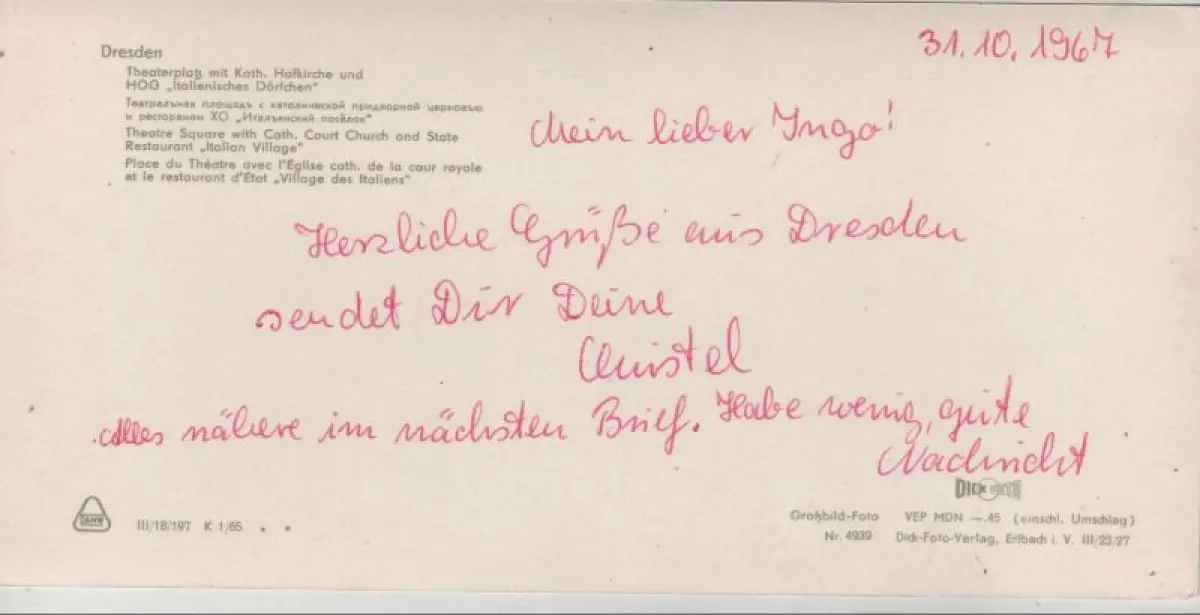 Dresden
Theaterplatz mit Kath. Hofkirche und
HOG „Italienisches Dörfchen"
Театральная площадь с католической придворной церковью
и рестораном ХО „Итальянский посёлок"
Theatre Square with Cath. Court Church and State
Restaurant „Italian Village"
Place du Théatre avec l'Église cath. de la cour royale
et le restaurant d'État „Village des Italiens"
31.10.1967
Mein lieber Ingo!
Herzliche Grüße aus Dresden
sendet Dir Deine
Christel
Alles nähere im nächsten Brief. Habe wenig, gute
Nachricht
III/18/197 K 1/65
DICK
Großbild-Foto VEP MDN —.45 (einschl. Umschlag)
Nr. 4939 Dick-Foto-Verlag, Erlbach i. V. III/23/27